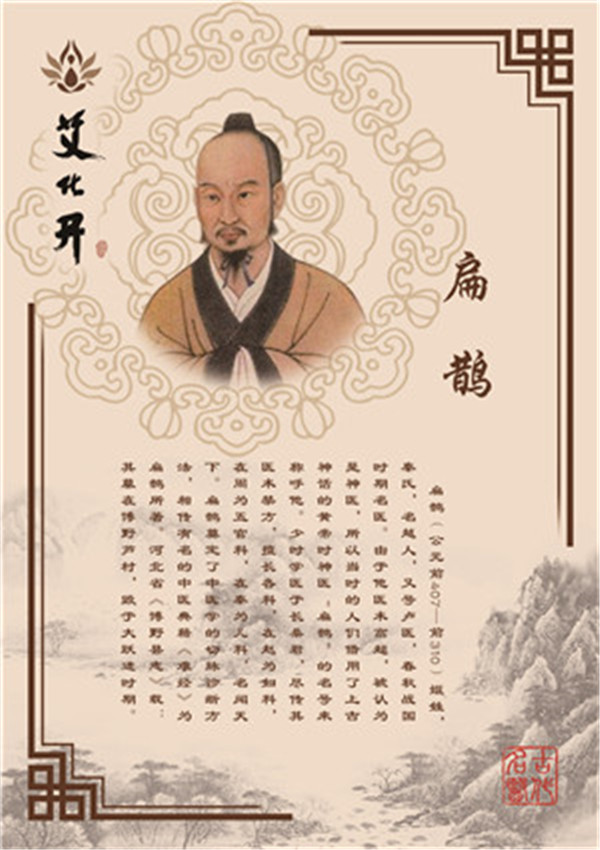 艾化开
扁鹊
扁鹊（公元前407—前310）姬姓，
秦氏，名越人，又号卢医，春秋战国
时期名医。由于他医术高超，被认为
是神医，所以当时的人们借用了上古
神话的黄帝时神医“扁鹊”的名号来
称呼他。少时学医于长桑君，尽传其
医术禁方，擅长各科，在赵为妇科，
在周为五官科，在秦为儿科，名闻天
下。扁鹊奠定了中医学的切脉诊断方
法，相传有名的中医典籍《难经》为
扁鹊所著 河北省《博野县志》载：
其墓在博野芦村，毁于大跃进时期。
古代
名醫